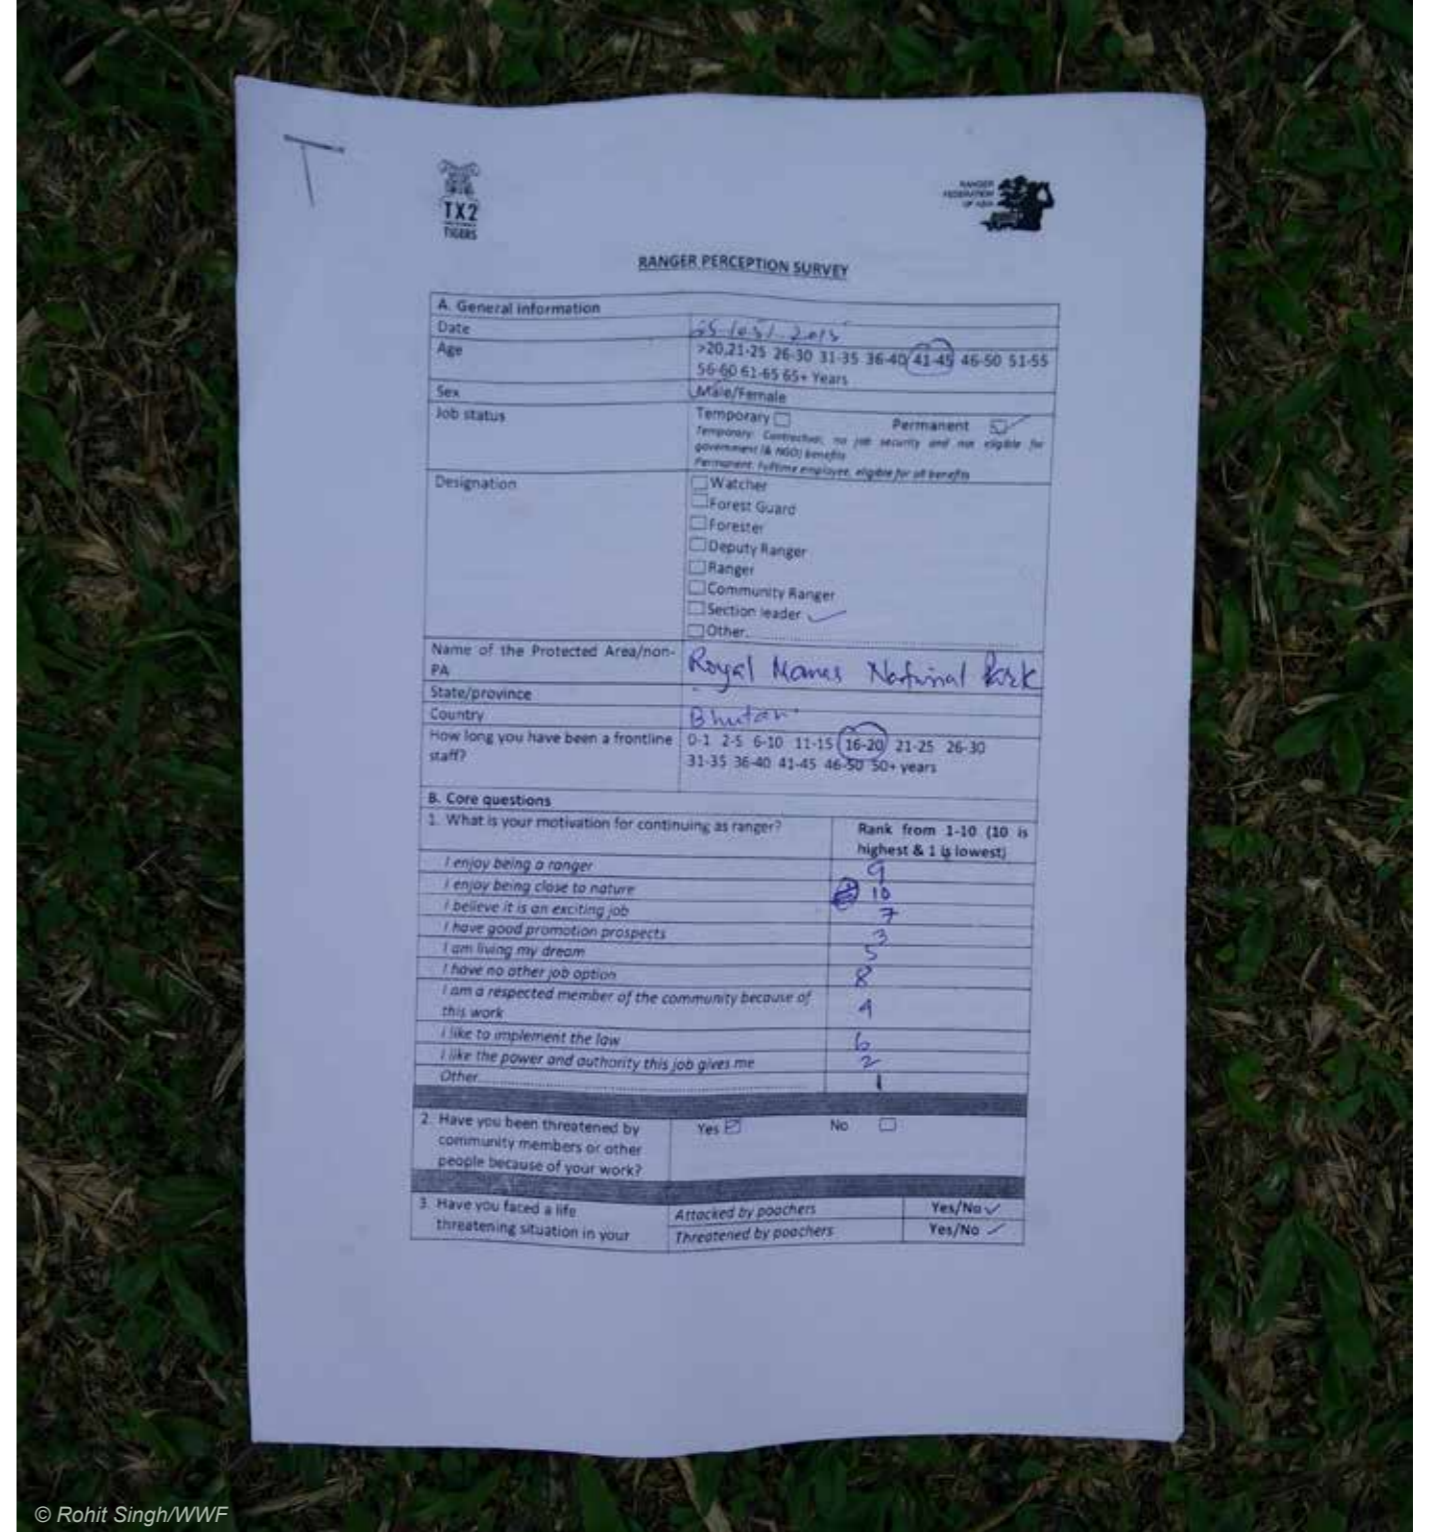 TX2
TIGERS
RANGER
FEDERATION
OF ASIA
RANGER PERCEPTION SURVEY
A. General information
Date
Age >20,21-25 26-30 31-35 36-40 41-45 46-50 51-55
56-60 61-65 65+ Years
Sex Male/Female
Job status Temporary Permanent
Temporary: Contractual, no job security and not eligible for
government (& NGO) benefits
Permanent: Fulltime employee, eligible for all benefits
Designation Watcher
Forest Guard
Forester
Deputy Ranger
Ranger
Community Ranger
Section leader
Other
Name of the Protected Area/non- Royal Manas National Park
PA
State/province
Country Bhutan
How long you have been a frontline 0-1 2-5 6-10 11-15 16-20 21-25 26-30
staff? 31-35 36-40 41-45 46-50 50+ years
B. Core questions
1. What is your motivation for continuing as ranger? Rank from 1-10 (10 is
highest & 1 is lowest)
I enjoy being a ranger 9
I enjoy being close to nature 10
I believe it is an exciting job 7
I have good promotion prospects 3
I am living my dream 5
I have no other job option 8
I am a respected member of the community because of 4
this work
I like to implement the law 6
I like the power and authority this job gives me 2
Other 1
2. Have you been threatened by Yes No
community members or other
people because of your work?
3. Have you faced a life Attacked by poachers Yes/No
threatening situation in your Threatened by poachers Yes/No
© Rohit Singh/WWF